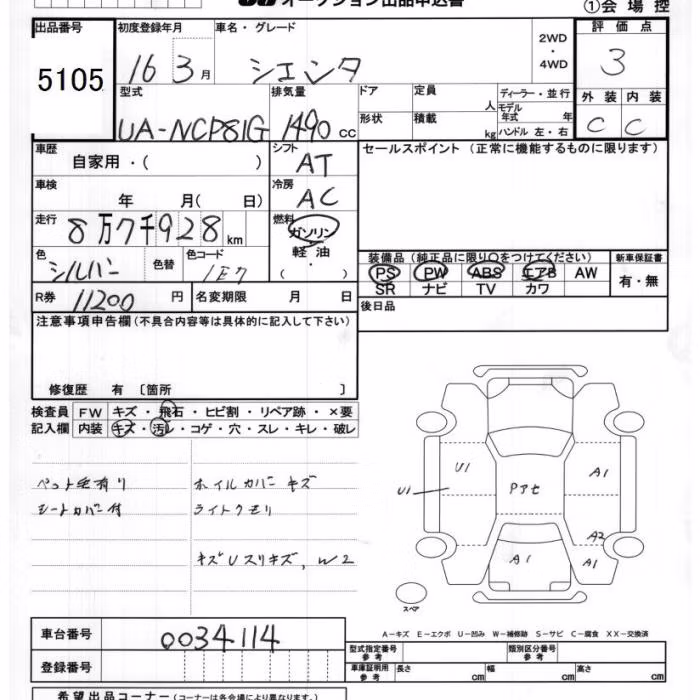 オークション出品申込書
①会場控
出品番号 初度登録年月 車名・グレード 評価点
5105 16 3月 シエンタ 2WD・4WD 3
型式 排気量 ドア 定員 人 ディーラー・並行
外装 内装
モデル年式 年
UA-NCP81G 1490cc 形状 積載 kg ハンドル 左・右 C C
車歴 シフト セールスポイント (正常に機能するものに限ります)
自家用・( ) AT
車検 冷房
年 月( 日) AC
走行 燃料
8万7千928km ガソリン
色 色替 色コード 軽油 装備品 (純正品に限り○をつけてください) 新車保証書
シルバー 1E7 ( ・ ) PS PW ABS エアB AW 有・無
R券 11200円 名変期限 月 日 SR ナビ TV カワ
後日品
注意事項申告欄(不具合内容等は具体的に記入して下さい)
修復歴 有 〔箇所 〕
検査員 FW キズ・飛石・ヒビ割・リペア跡・×要
記入欄 内装 キズ・汚レ・コゲ・穴・スレ・キレ・破レ
U1 A1
ペット毛有り ホイルカバーキズ U1 Pアセ
シートカバー付 ライトクモリ A2
キズUスリキズ,W2 A1 A1
スペア
A-キズ E-エクボ U-凹み W-補修跡 S-サビ C-腐食 XX-交換済
車台番号 0034114 型式指定番号 参考 類別区分番号 参考
登録番号 車庫証明用 参考 長さ cm 幅 cm 高さ cm
希望出品コーナー(コーナーは各会場により異なります。)